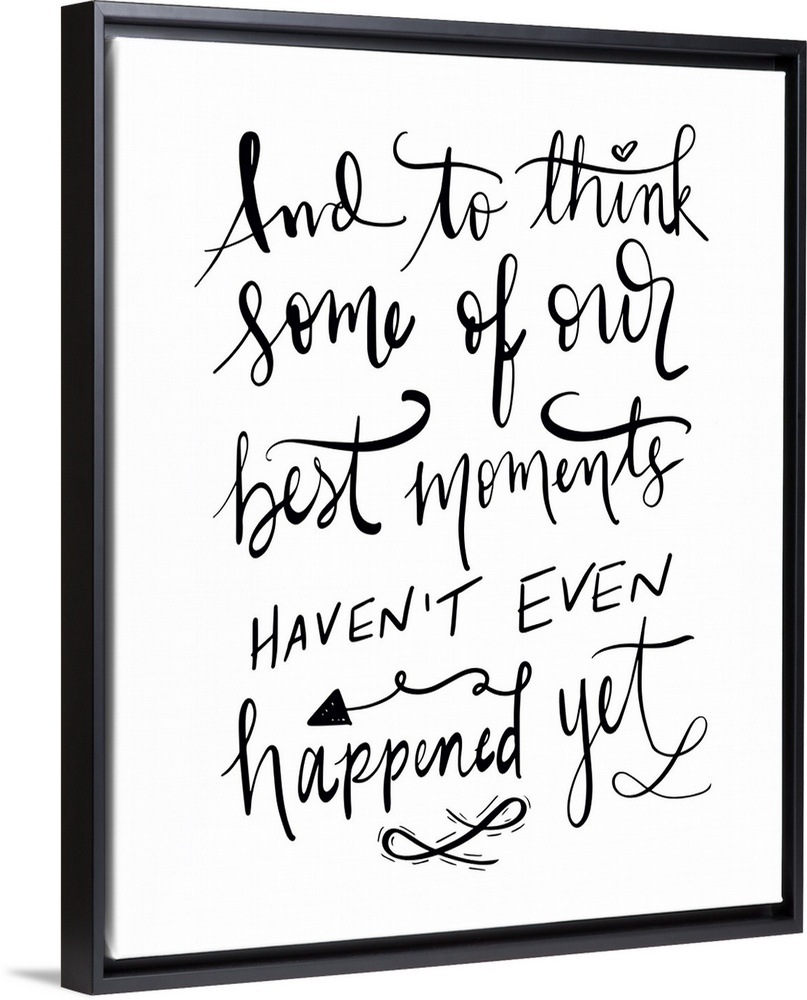 And to think
some of our
best moments
HAVEN'T EVEN
happened yet